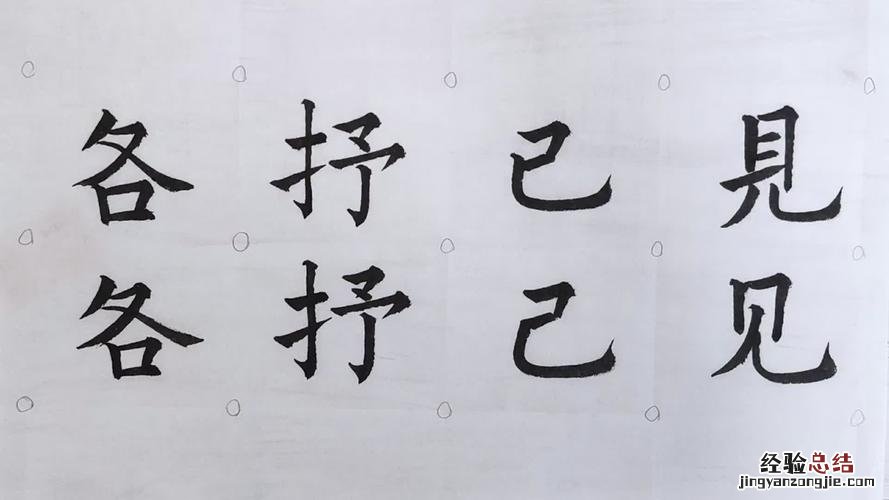 各抒己見
各抒己见
经验总结
jingyanzongjie.com